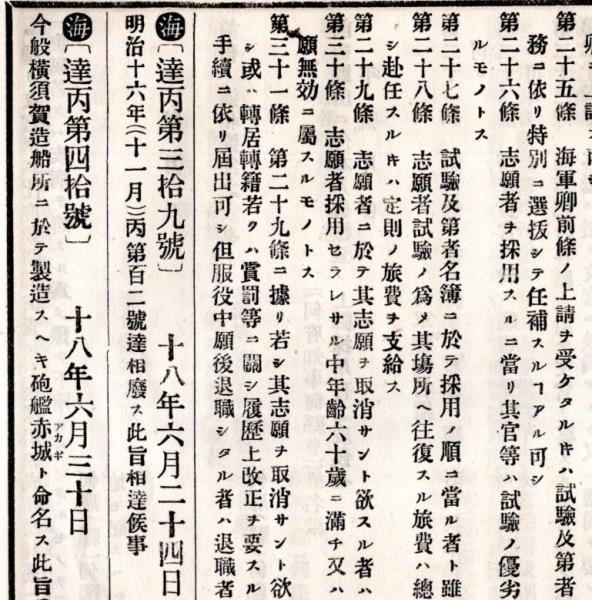 第二十五條　海軍卿前條ノ上請ヲ受ケタルキハ試驗及第者
務ニ依リ特別ニ選拔シテ任補スルヿアル可シ
第二十六條　志願者ヲ採用スルニ當リ其官等ハ試驗ノ優劣
ルモノトス
第二十七條　試驗及第者名簿ニ於テ採用ノ順ニ當ル者ト雖
第二十八條　志願者試驗ノ爲メ其塲所ヘ往復スル旅費ハ總
シ赴任スルキハ定則ノ旅費ヲ支給ス
第二十九條　志願者ニ於テ其志願ヲ取消サント欲スル者ハ
第三十條　志願者採用セラレサル中年齡六十歲ニ滿チ又ハ
願無効ニ屬スルモノトス
第三十一條　第二十九條ニ據リ若シ其志願ヲ取消サント欲
シ或ハ轉居轉籍若クハ賞罰等ニ關シ履歷上改正ヲ要スル
手續ニ依リ屆出可シ但服役中願後退職シタル者ハ退職者
海〔達丙第三拾九號〕　十八年六月二十四日
明治十六年(十一月)丙第百二號達相廢ス此旨相達候事
海〔達丙第四拾號〕　十八年六月三十日
今般橫須賀造船所ニ於テ製造スヘキ砲艦赤城アカギト命名ス此旨